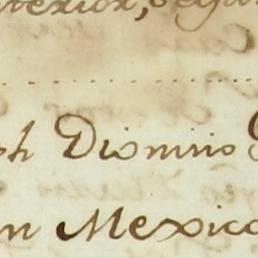 terior, segu
ph Dionirio
n Mexico